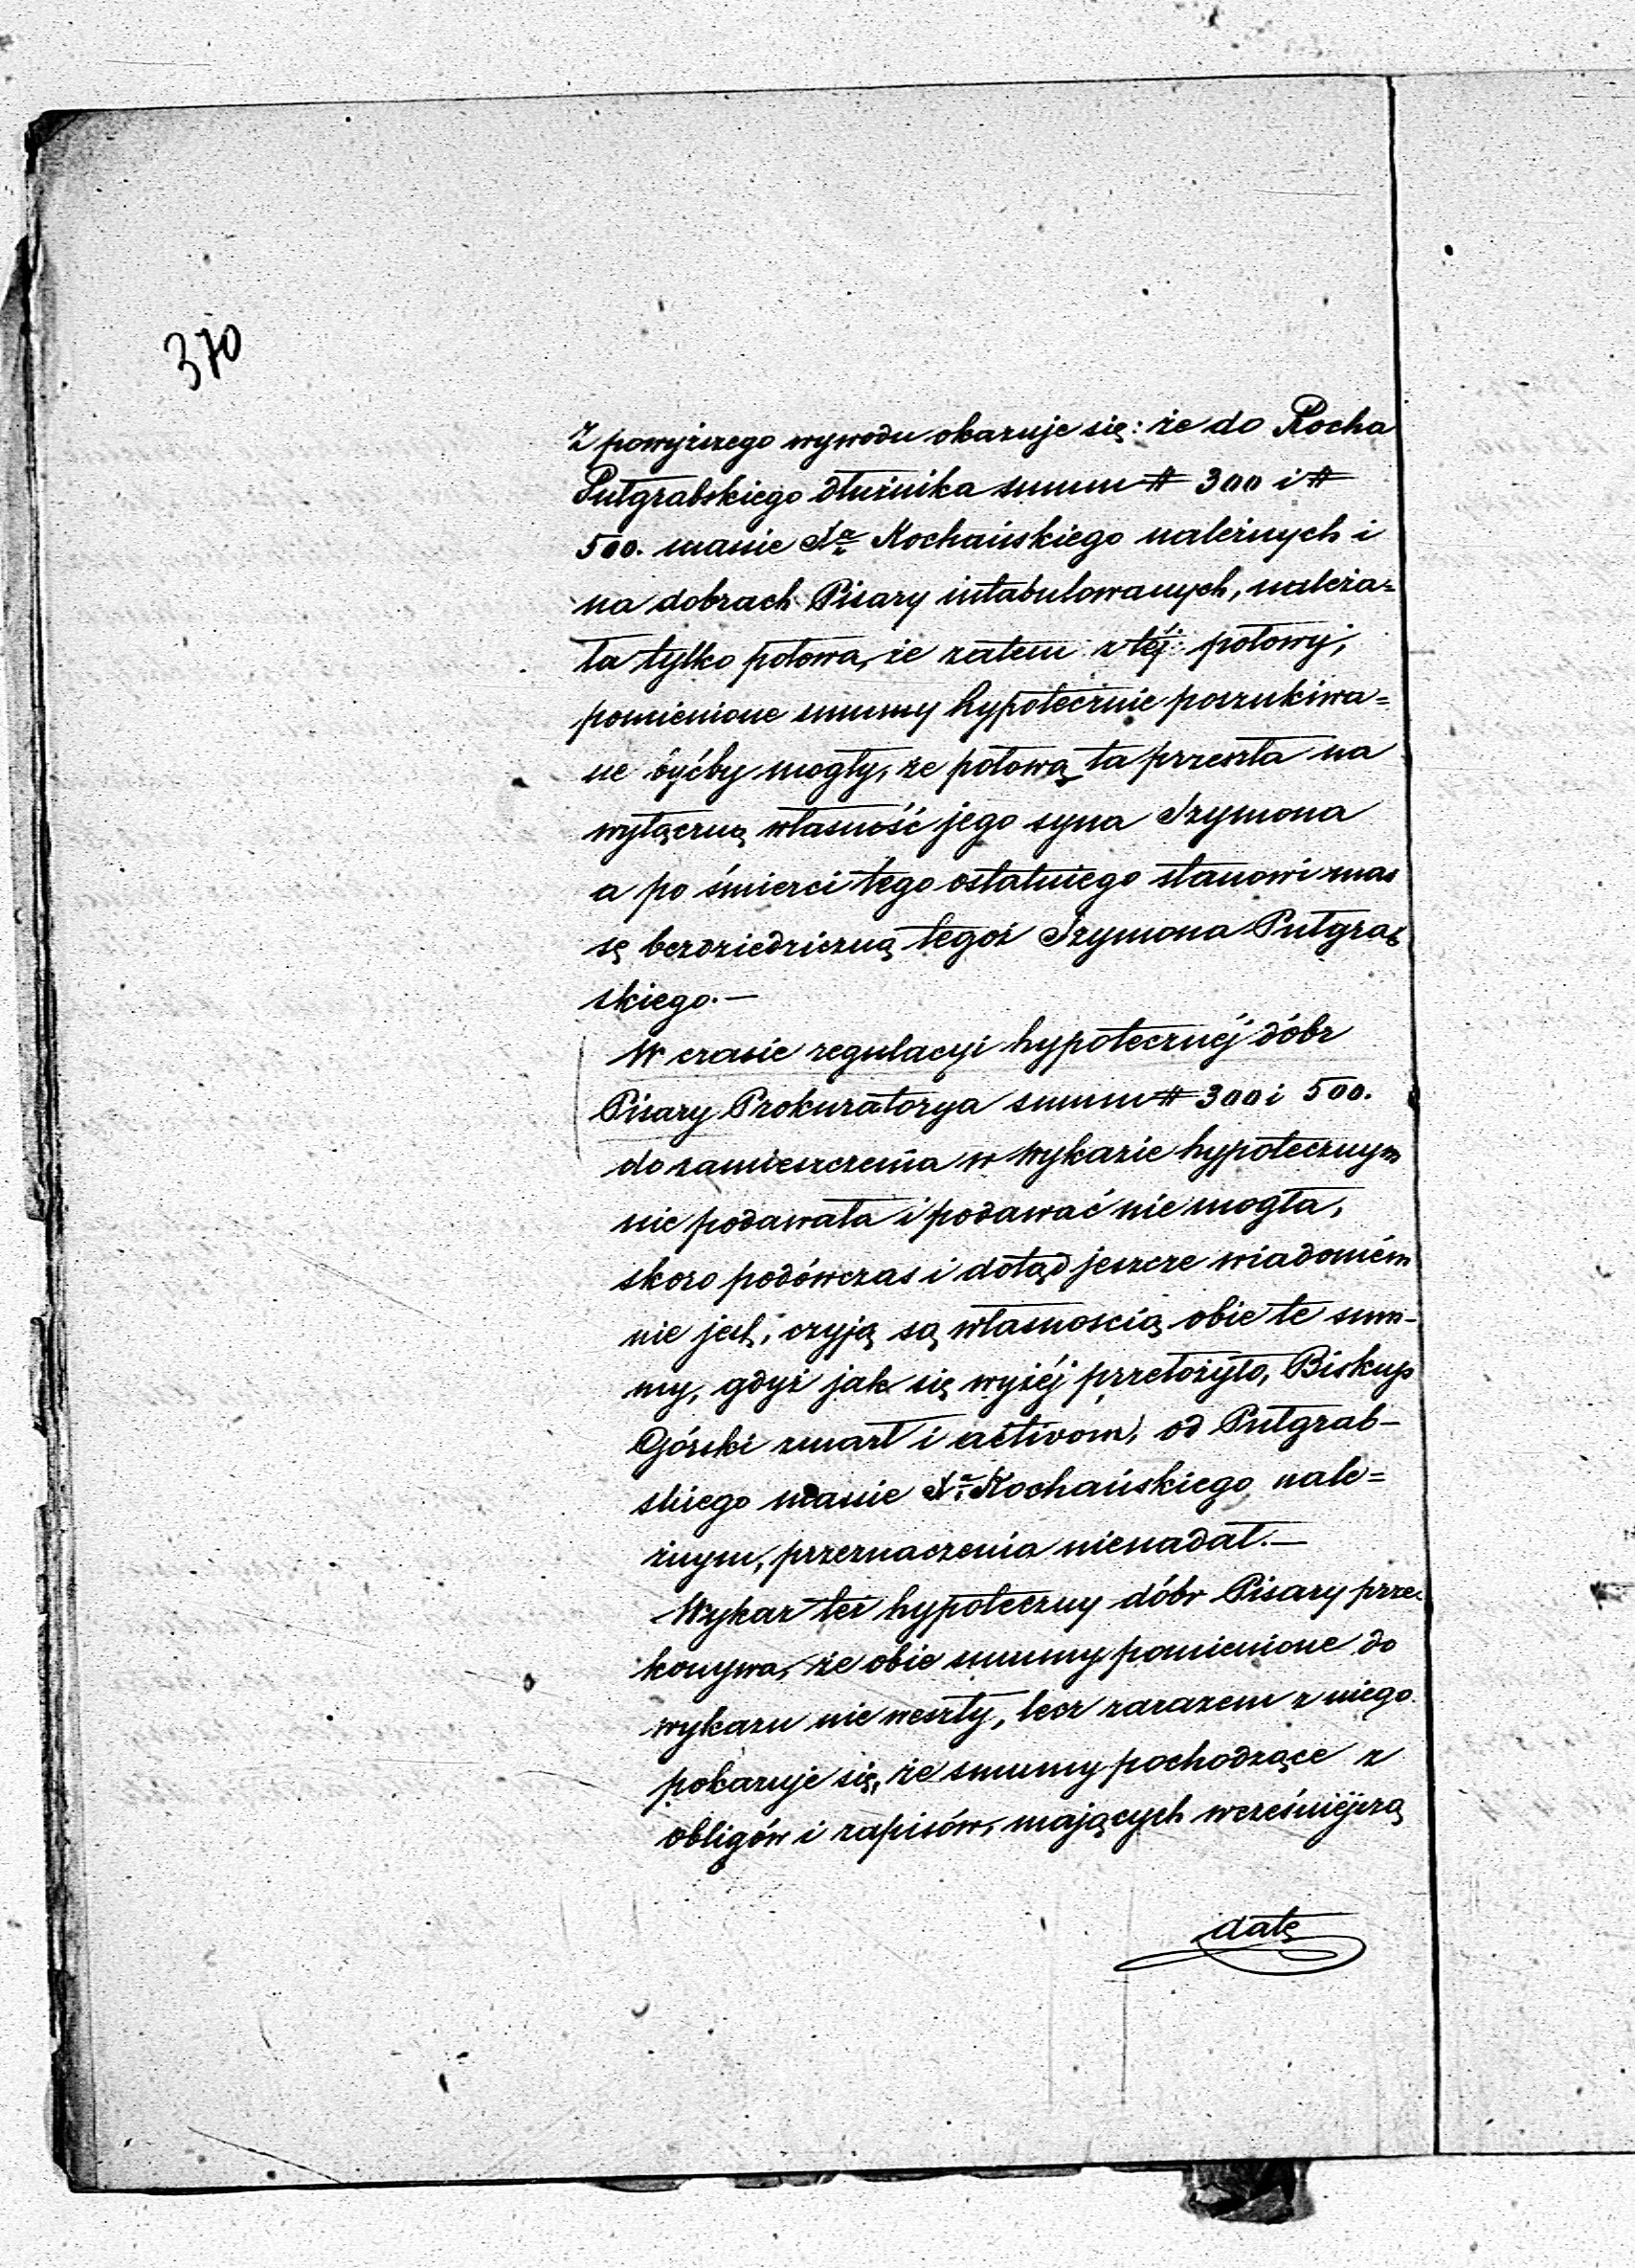 370
Z powyższego wywodu okazuje się: że do Rocha
Putgrabskiego dłużnika summ # 300 i #
500. massie Xa Kochańskiego należnych i
na dobrach Pisary intabulowanych, należa=
ła tylko połowa, że zatem z téj połowy,
pomienione summy hypotecznie poszukiwa=
ne byćby mogły, że połowa ta przeszła na
wyłączną własność jego syna Szymona
a po śmierci tego ostatniego stanowi mas
sę bezdziedziczną tegoż Szymona Putgrab
skiego.—
W czasie regulacyi hypotecznéj dóbr
Pisary Prokuratorya summ # 300 i 500.
do zamieszczenia w wykazie hypotecznym
nie podawała i podawać nie mogła,
skoro podówczas i dotąd jeszcze wiadomém
nie jest, czyją są własnoscią obie te sum-
my, gdyż jak się wyżéj przełożyło, Biskup
Górski zmarł i activom, od Putgrab-
skiego massie Xa Kochańskiego nale=
żnym, przeznaczenia nienadał.—
Wykaz też hypoteczny dóbr Pisary prze-
konywa, że obie summy pomienione do
wykazu nie weszły, lecz zarazem z niego
pokazuje się, że summy pochodzące z
obligów i zapisów, mających wcześniéjszą
datę